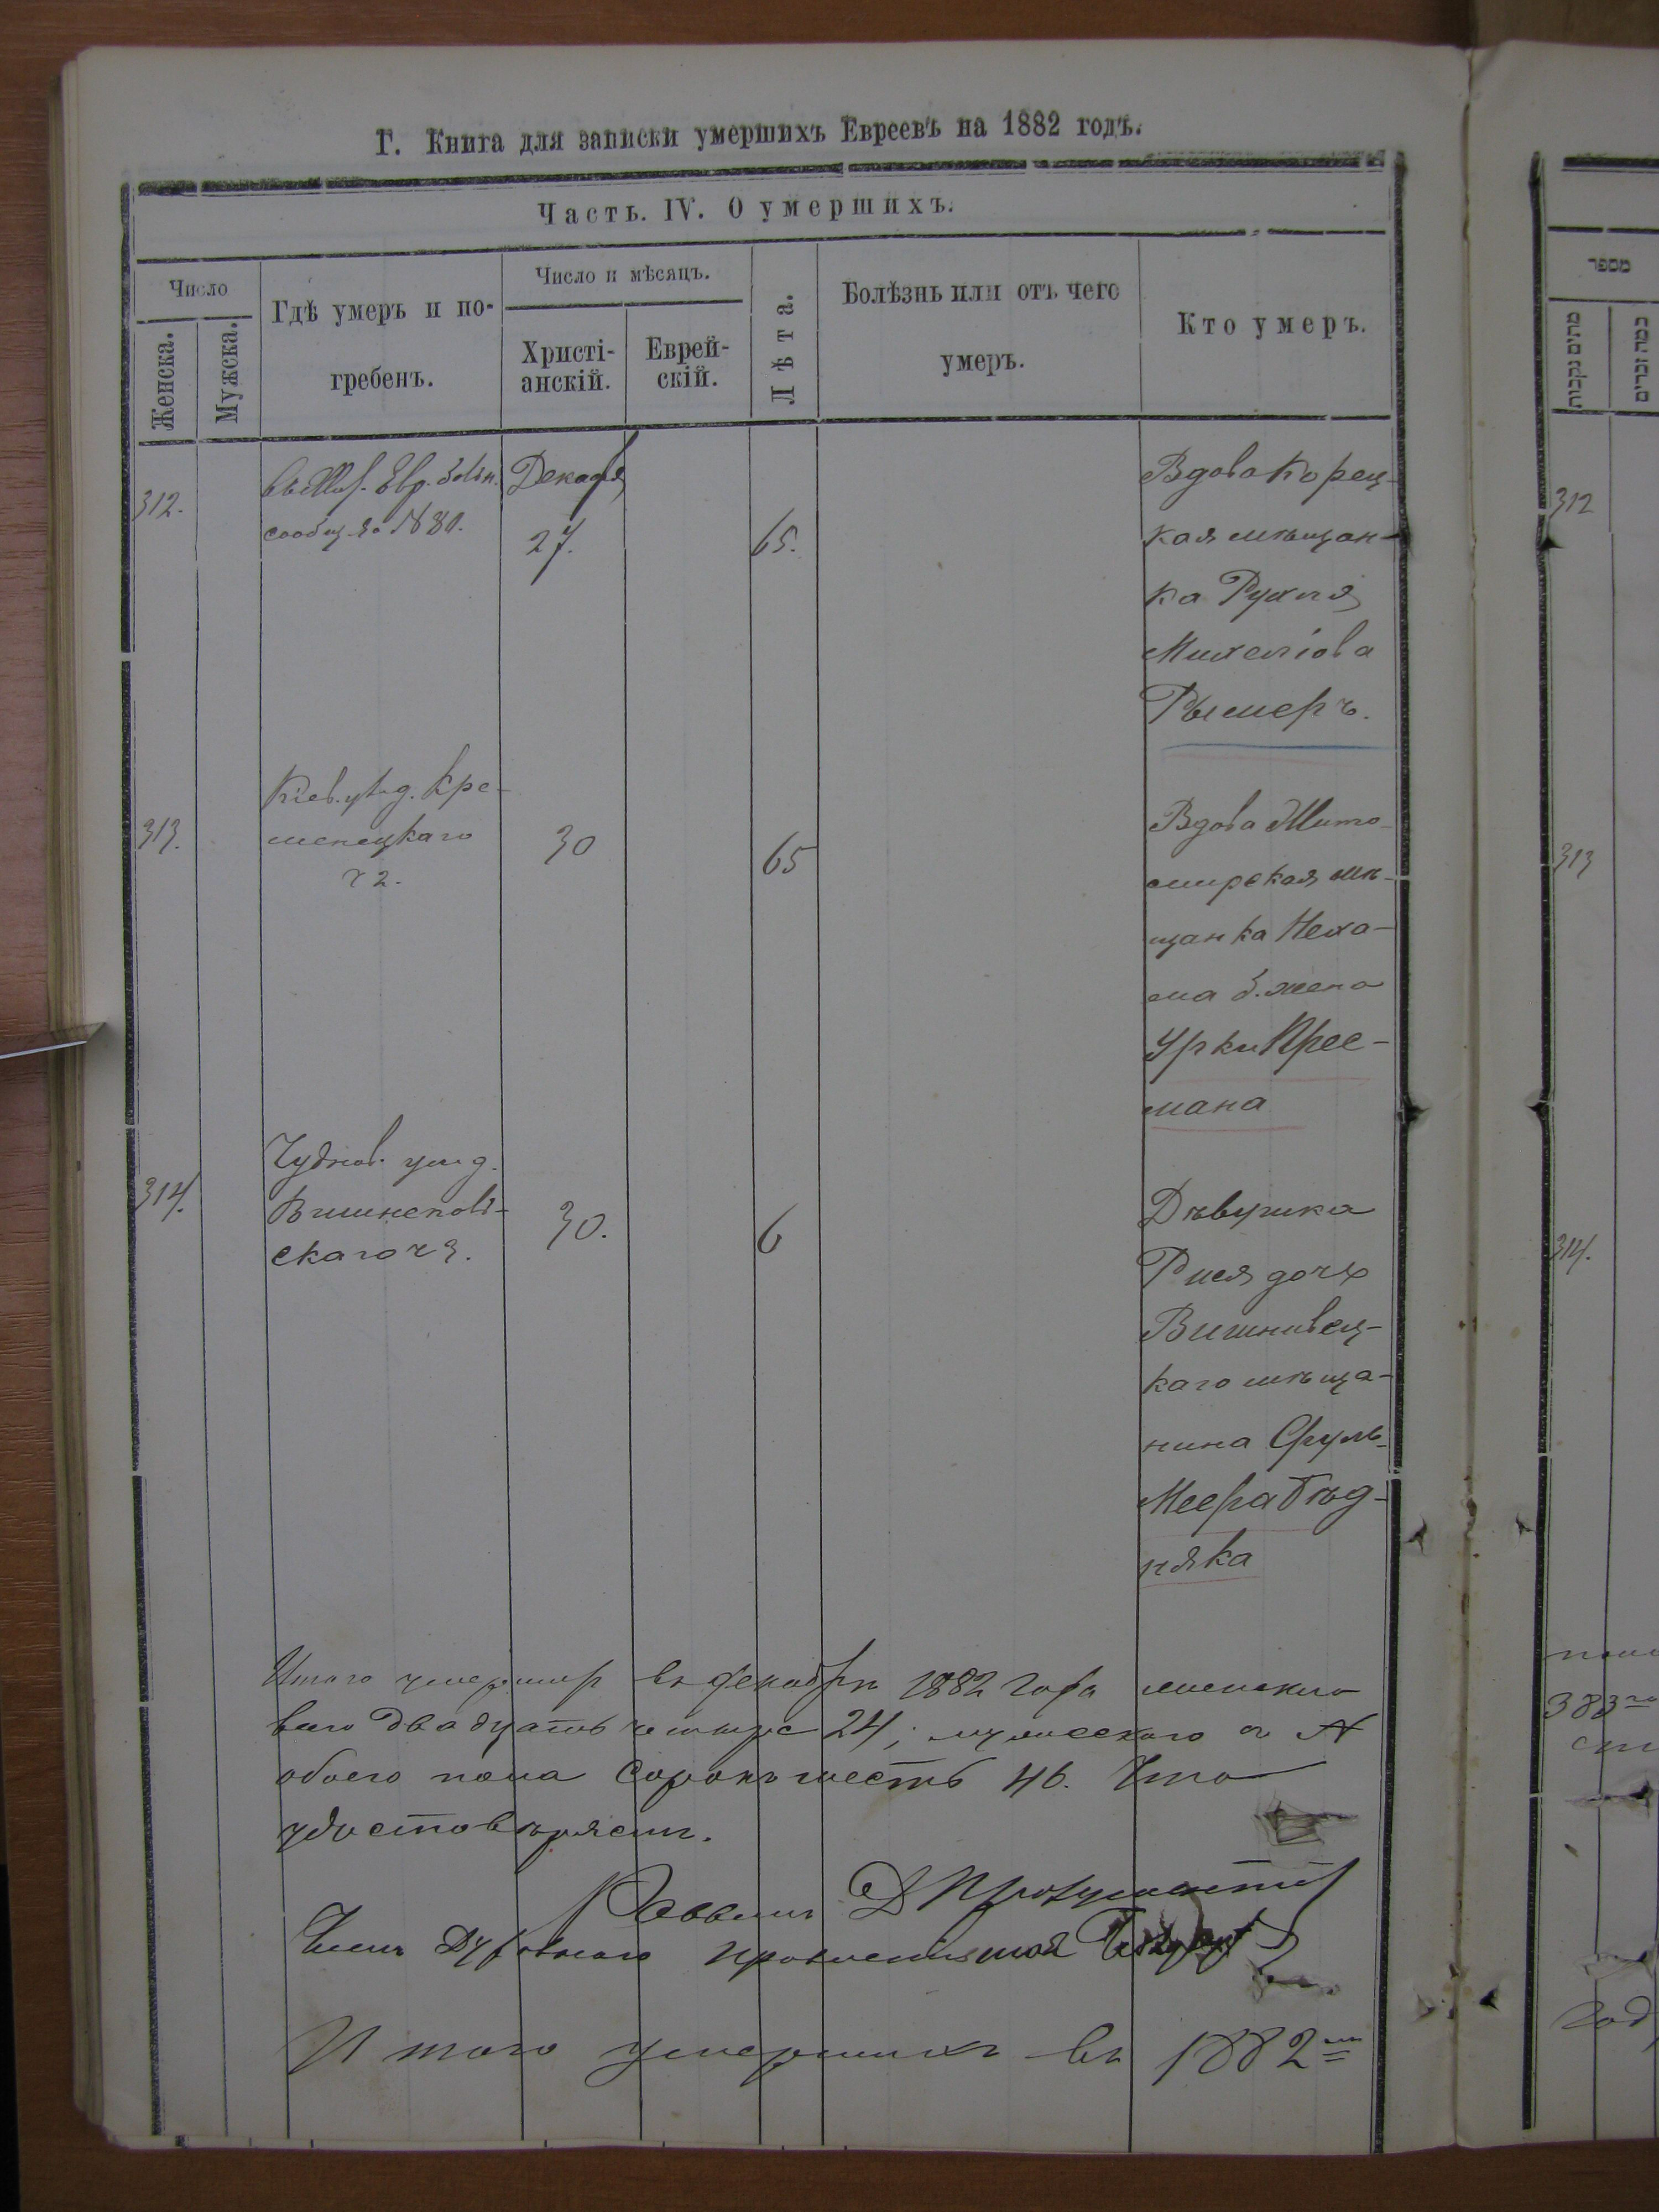 Г. Книга для записки умершихъ Евреевъ на 1882 годъ.
Часть. IV. О умершихъ.
Число
Женска.
Мужска.
Гдѣ умеръ и по-
гребенъ.
Число и мѣсяцъ.
Христі-
анскій.
Еврей-
скій.
Лѣта.
Болѣзнь или отъ чего
умеръ.
Кто умеръ.
312.
Евр. больн.
сообщ. № 81.
Декабря
27.
65.
Вдова Корец-
кая мѣщан-
ка Рухля
Михеліова
Рымеръ.
313.
Кіев. Кре-
менецкаго
ч 2.
30
65
Вдова Жито-
мирская мѣ-
щанка Неха-
ма б. жена
Урки Прес-
мана
314.
Чуднов.
скаго ч 3.
30.
6
Дѣвушка
Рися дочь
Вишнивец-
каго мѣща-
нина Сруль-
Меера Бѣд-
няка
Итого въ декабрѣ 1882 года женскаго
всего двадцать четыре 24; мужескаго
обоего пола сорокъ шесть 46. Что
удостовѣряемъ.
Раввинъ
Членъ Духовнаго правленія
Итого умершихъ въ 1882
מספר
מתים נקבות
כמה זכרים
312
313
314.
383
год